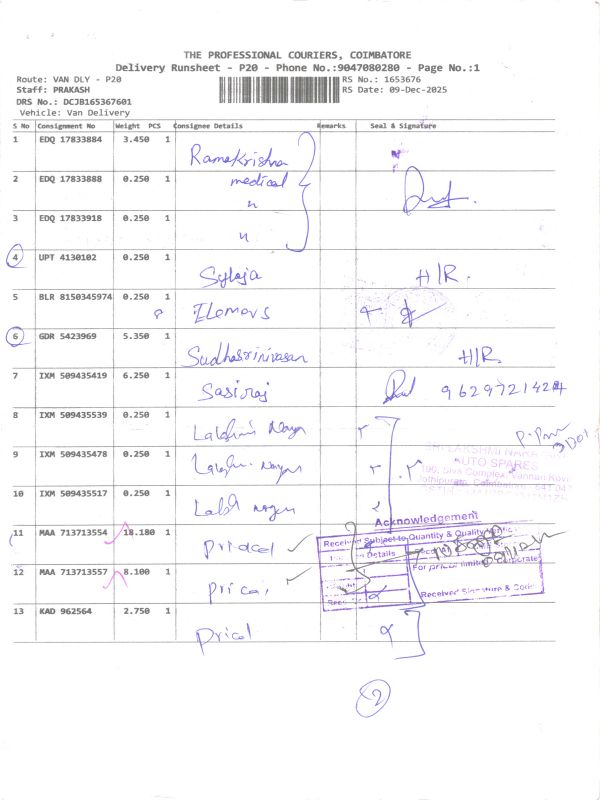 THE PROFESSIONAL COURIERS, COIMBATORE
Delivery Runsheet - P20 - Phone No.:9047080280 - Page No.:1
Route: VAN DLY - P20
Staff: PRAKASH
DRS No.: DCJB165367601
Vehicle: Van Delivery
RS No.: 1653676
RS Date: 09-Dec-2025
S No Consignment No Weight PCS Consignee Details Remarks Seal & Signature
1 EDQ 17833884 3.450 1 Ramakrishna
2 EDQ 17833888 0.250 1 medical
3 EDQ 17833918 0.250 1
4 UPT 4130102 0.250 1 Syloja H/R.
5 BLR 8150345974 0.250 1
6 GDR 5423969 5.350 1 Sudhasrinivasan H/R.
7 IXM 509435419 6.250 1 Sasiraj 9629721424
8 IXM 509435539 0.250 1
9 IXM 509435478 0.250 1
10 IXM 509435517 0.250 1
SRI LAKSHMI
AUTO SPARES
Acknowledgement
Received Subject to Quantity & Quality
Details
Received Signature & Code
11 MAA 713713554 18.180 1
12 MAA 713713557 8.100 1
13 KAD 962564 2.750 1 Pricol
2